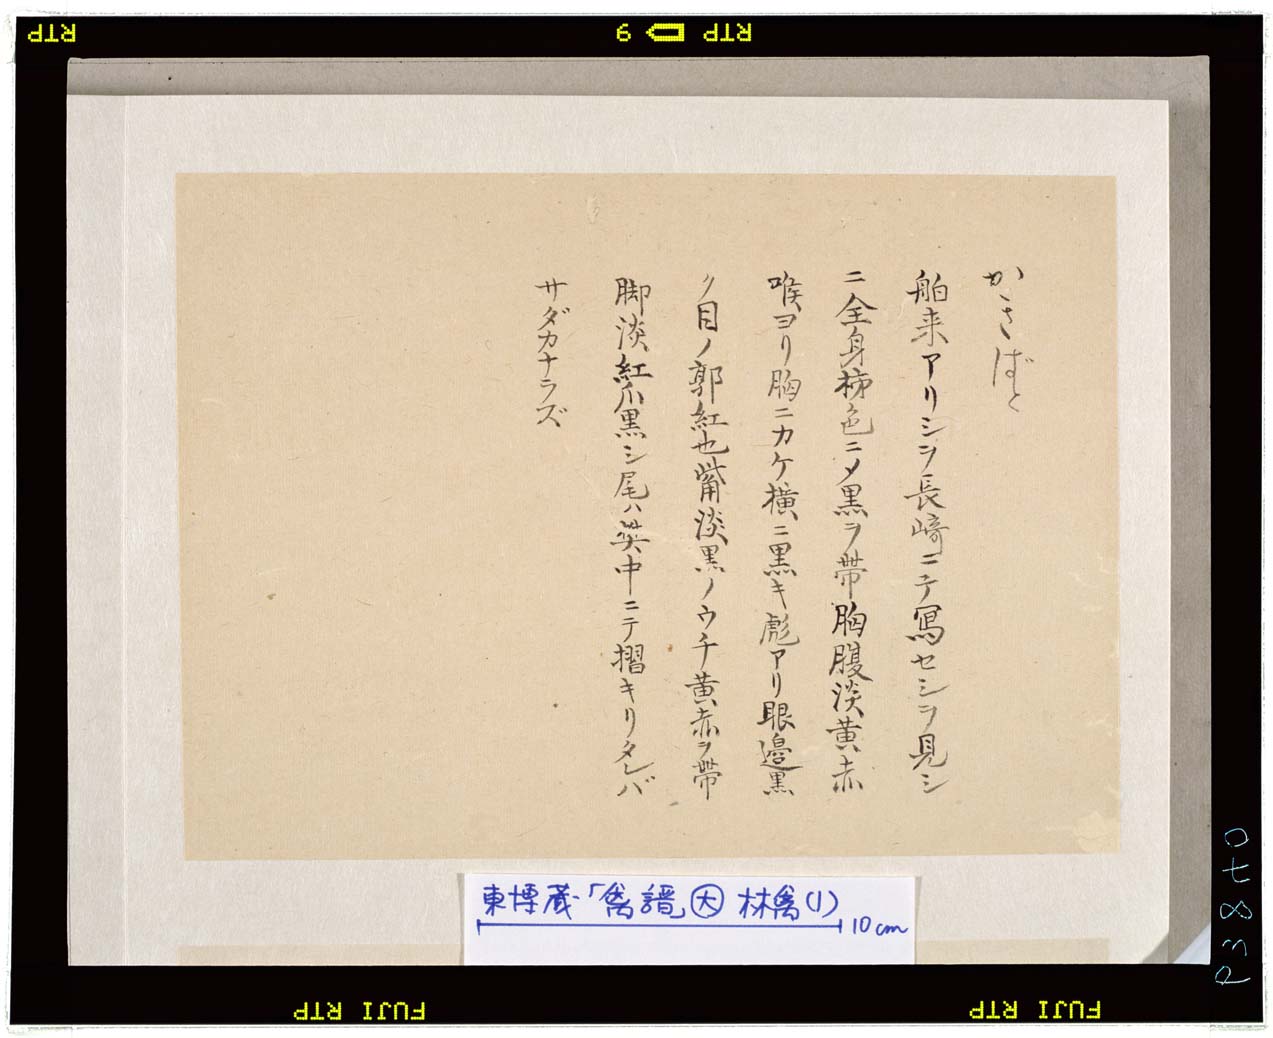 RTP
9
RTP
かさばと
舶来アリシヲ長崎ニテ冩セシヲ見シ
ニ全身柿色ニメ黒ヲ帯胸腹淡黄赤
喉ヨリ胸ニカケ横ニ黒キ彪アリ眼邉黒
ク目ノ郭紅也觜淡黒ノウチ黄赤ヲ帯
脚淡紅爪黒シ尾ハ中ニテ摺キリタレバ
サダカナラズ
東博蔵「禽譜」大 林禽(1)
10cm
FUJI RTP
FUJI RTP